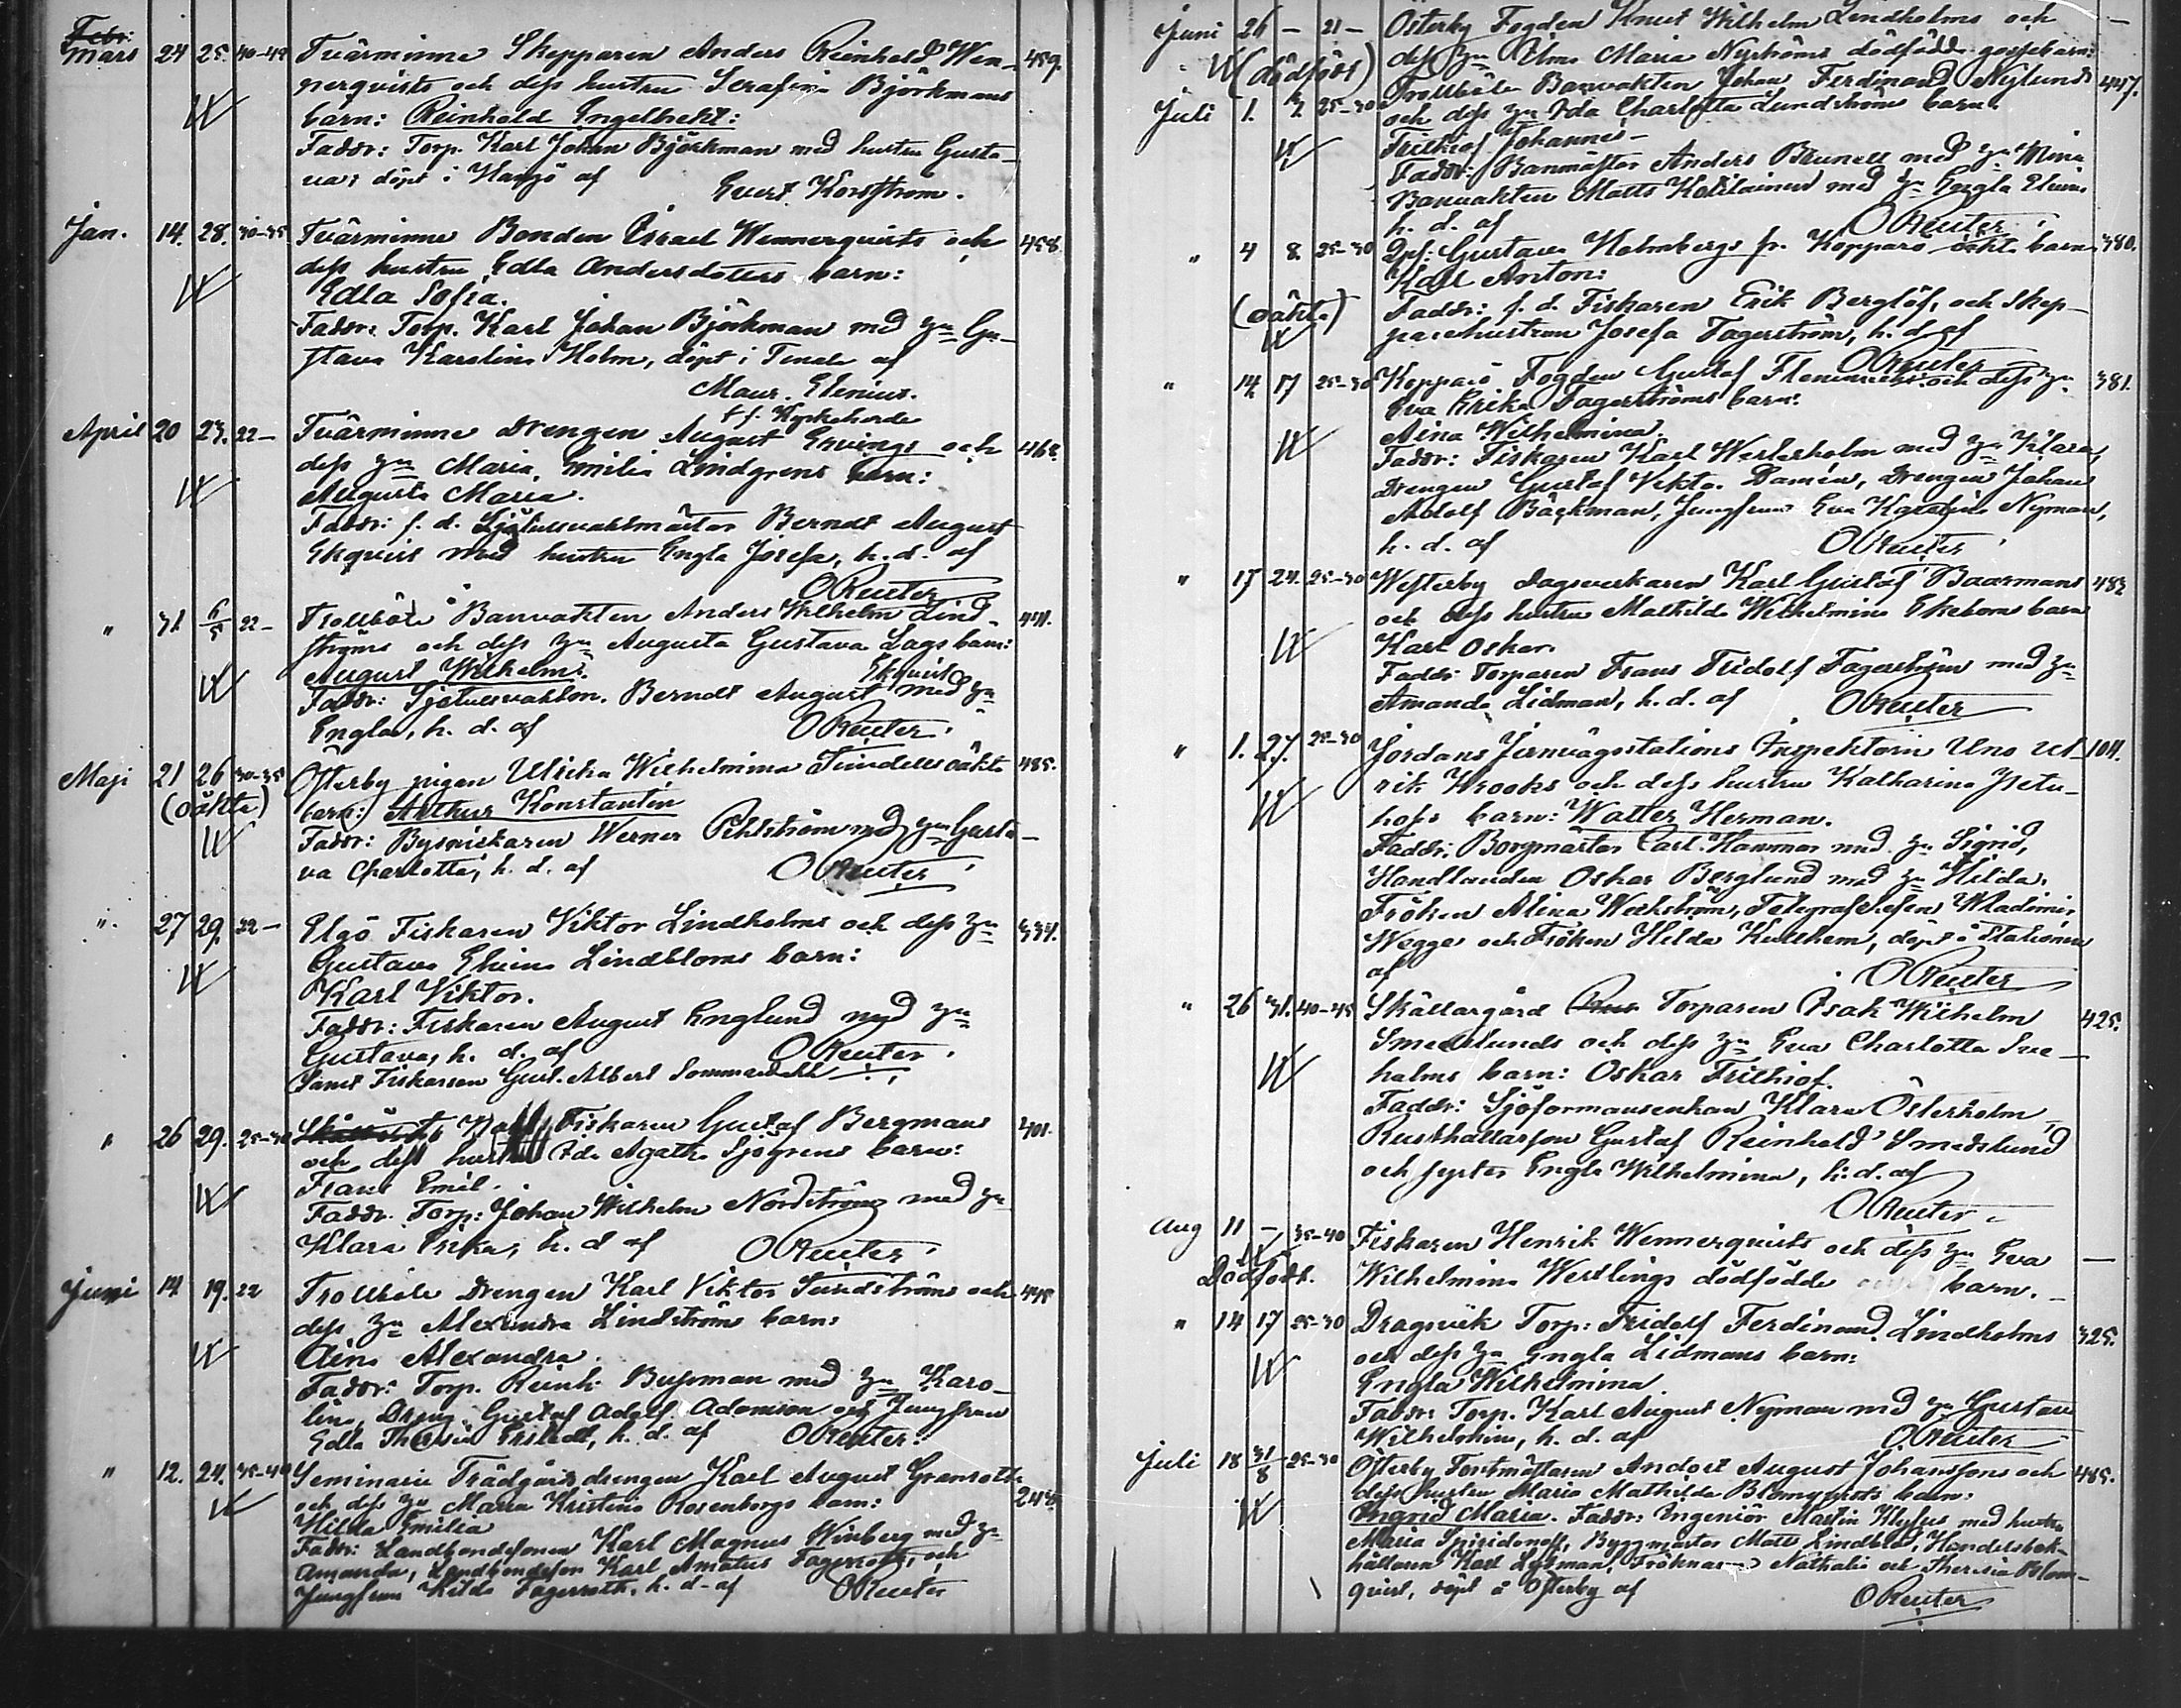 Febr:
Mars 24 25. 40-49 Tvärminne Skepparen Anders Reinhold Wen- 459.
nerqvists och dess hustru Serafina Björkmans
barn: Reinhold Engelbekt:
Faddr: Torp. Karl Johan Björkman med hustru Gusta-
va; döpt i Hangö af Evert Korsström.
Jan. 14. 28. 30-35 Tvärminne Bonden Israel Wennerqvists och 458.
dess hustru Edla Andersdotters barn:
Edla Sofia.
Faddr: Torp. Karl Johan Björkman med hu Gu-
stava Karolina Holm, döpt i Tenala af
Maur. Elenius.
f.f. Kyrkoherde
April 20 23. 22- Tvärminne Drengen August Ekvings och 468.
dess hu Maria Emilia Lindgrens barn:
Augusta Maria.
Faddr: f. d. Sjötullsvaktmästar Berndt August
Ekqvist med hustru Engla Josefa, h. d. af
O Reuter
" 31. 6/5 22- Trollböle Banvakten Anders Wilhelm Lind- 441.
ströms och dess hu Augusta Gustava Lags barn:
August Wilhelm. Ekqvist
Faddr: Sjötullsvaktm. Berndt August med hu
Engla, h. d. af O Reuter.
Maji 21 26 30-35 Österby pigan Ulrika Wilhelmina Tundells oäkta 485.
(oäkta) barn: Arthur Konstantin
Faddr: Bysmiskaren Werner Pehlström med hu Gusta-
va Charlotta, h. d. af O Reuter
". 27 29. 22- Elgö Fiskaren Viktor Lindholms och dess hu 334.
Gustava Elvina Lindbloms barn:
Karl Viktor.
Faddr: Fiskaren August Englund med hu
Gustava, h. d. af O Reuter.
samt Fiskarson Gust. Albert Sommardahl
" 26 29. 25-30 Fiskaren Gustaf Bergmans 401.
och dess hustru Ida Agatha Sjögrens barn:
Frans Emil.
Faddr. Torp: Johan Wilhelm Nordström med hu
Klara Erika, h. d af O Reuter
Juni 14 19. 22 Trollböle Drengen Karl Viktor Sundströms och 445
dess hu Alexandra Lindströms barn:
Aina Alexandra.
Faddr: Torp. Reinh. Bussman med hu Karo-
lina, Dreng. Gustaf Adolf Adamsson och Jungfrun
Edla Theresia Erstedt, h. d. af O Reuter.
" 12. 24. 35-40 Seminarii Trädgårdsdrengen Karl August Granroths
och dess hu Maria Kristina Rosenborgs barn: 248
Hilda Emilia
Faddr: Landbondesonen Karl Magnus Winberg med hu
Amanda, Landbondeson Karl Amatus Fagerroth, och
Jungfrun Hilda Fagerroth, h. d. af O Reuter
Juni 26 - 21- Österby Fogden Knut Wilhelm Lindholms och -
(dödfödt) dess hu Alma Maria Nyströms dödfödda gossebarn.
Juli 1. 7. 25-30 Trollböle Banvakten Johan Ferdinand Nylunds 447.
och dess hu Ida Charlotta Lundströms barn
Frithiof Johannes-
Faddr: Banmästar Anders Brunell med hu Mina
Banvakten Matts Kokkilainen med hu Engla Elvina
h. d. af O Reuter
" 4 8. 25-30 Gustava Holmbergs fr. Kopparö oäkta barn 380.
Karl Anton:
(oäkta) Faddr: f. d. Fiskaren Erik Berglöf, och Skep-
parehustrun Josefa Fagerström, h. d. af
O Reuter
" 14. 17 25-30 Kopparö Fogden Gustaf och dess hu 381.
Eva Erika Fagerströms barn:
Aina Wilhelmina
Faddr: Fiskaren Karl Westerholm med hu Klara,
Drengen Gustaf Viktor Damén, Drengen Johan
Adolf Bäckman, Jungfrun Eva Karolina Nyman,
h. d. af O Reuter
" 17 24. 25-30 Westerby Dagsverkaren Karl Gustaf Baarmans 483
och dess hustru Mathilda Wilhelmina Ekeboms barn
Karl Oskar
Faddr: Torparen Frans Fridolf Fagerström med hu
Amanda Lidman, h. d. af O Reuter
" 1. 27. 25-30 Jordans Jernvägsstations Inspektorn Uno Ul- 104.
rik Krooks och dess hustru Katharina
hofs barn: Walter Herman.
Faddr: Borgmästar Carl Hammar med hu Sigrid,
Handlanden Oskar Berglund med hu Hilda.
Fröken Alina Weckström, Telegrafchefen Wladimir
Wegge och Fröken Hilda Kullhem, döpt å Stationen
af O Reuter
" 26 31. 40-45 Skällargård Torparen Isak Wilhelm 425.
Smedslunds och dess hu Eva Charlotta Sve-
holms barn: Oskar Frithiof.
Faddr: Sjöformansenkan Klara Österholm,
Rusthållarson Gustaf Reinhold Smedslund
och syster Engla Wilhelmina, h. d. af
O Reuter
Aug 11 - 35-40 Fiskaren Henrik Wennerqvists och dess hu Eva -
Dödfödt. Wilhelmina Westlings dödfödda barn. -
" 14 17 25-30 Dragsvik Torp: Fridolf Ferdinand Lindholms 325.
och dess hu Engla Lidmans barn:
Engla Wilhelmina.
Faddr: Torp. Karl August Nyman med hu Gustava
Wilhelmina, h. d. af O Reuter
Juli 18 31/8 25-30 Österby Forstmästaren Andort August Johanssons och 485.
dess hustru Maria Mathilda Blomqvists barn:
Ingrid Maria. Faddr: Ingeniör Martin med hustru
Maria Spiridonoff, Byggmästar Matts Lindblad, Handelsbok-
hållaren Karl Lykman, Fröknarna Nathalia och Theresia Blom-
qvist, döpt å Österby af O Reuter